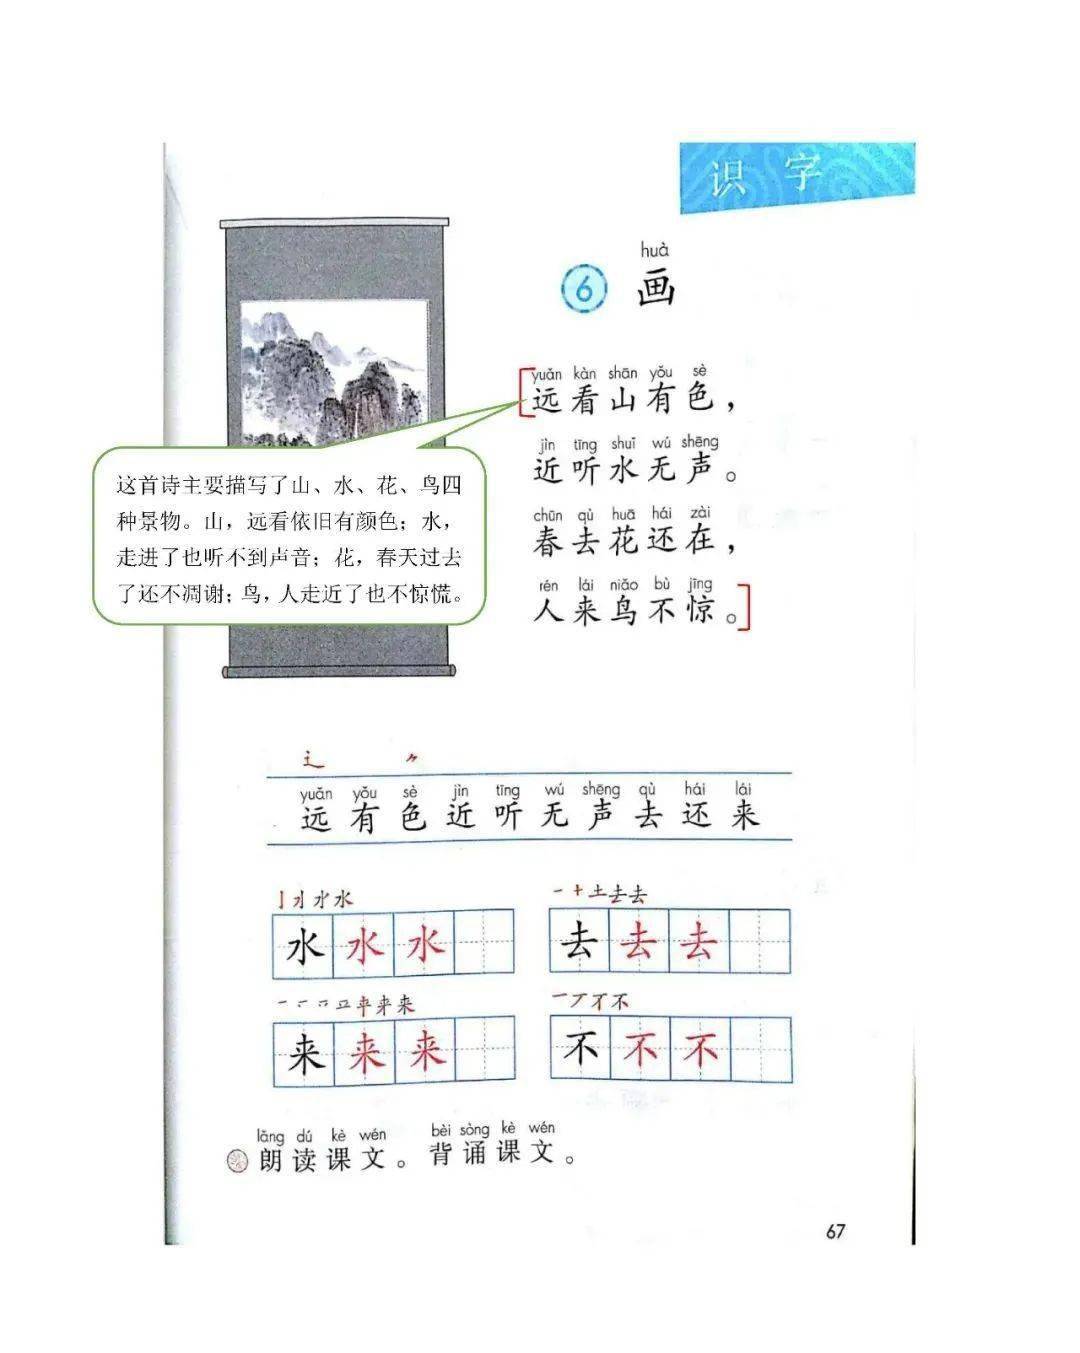 识 字
huà
6 画
yuǎn kàn shān yǒu sè
远看山有色，
jìn tīng shuǐ wú shēng
近听水无声。
chūn qù huā hái zài
春去花还在，
rén lái niǎo bù jīng
人来鸟不惊。
这首诗主要描写了山、水、花、鸟四
种景物。山，远看依旧有颜色；水，
走进了也听不到声音；花，春天过去
了还不凋谢；鸟，人走近了也不惊慌。
辶
yuǎn yǒu sè jìn tīng wú shēng qù hái lái
远 有 色 近 听 无 声 去 还 来
水 水 水
去 去 去
来 来 来
不 不 不
lǎng dú kè wén bèi sòng kè wén
朗读课文。背诵课文。
67